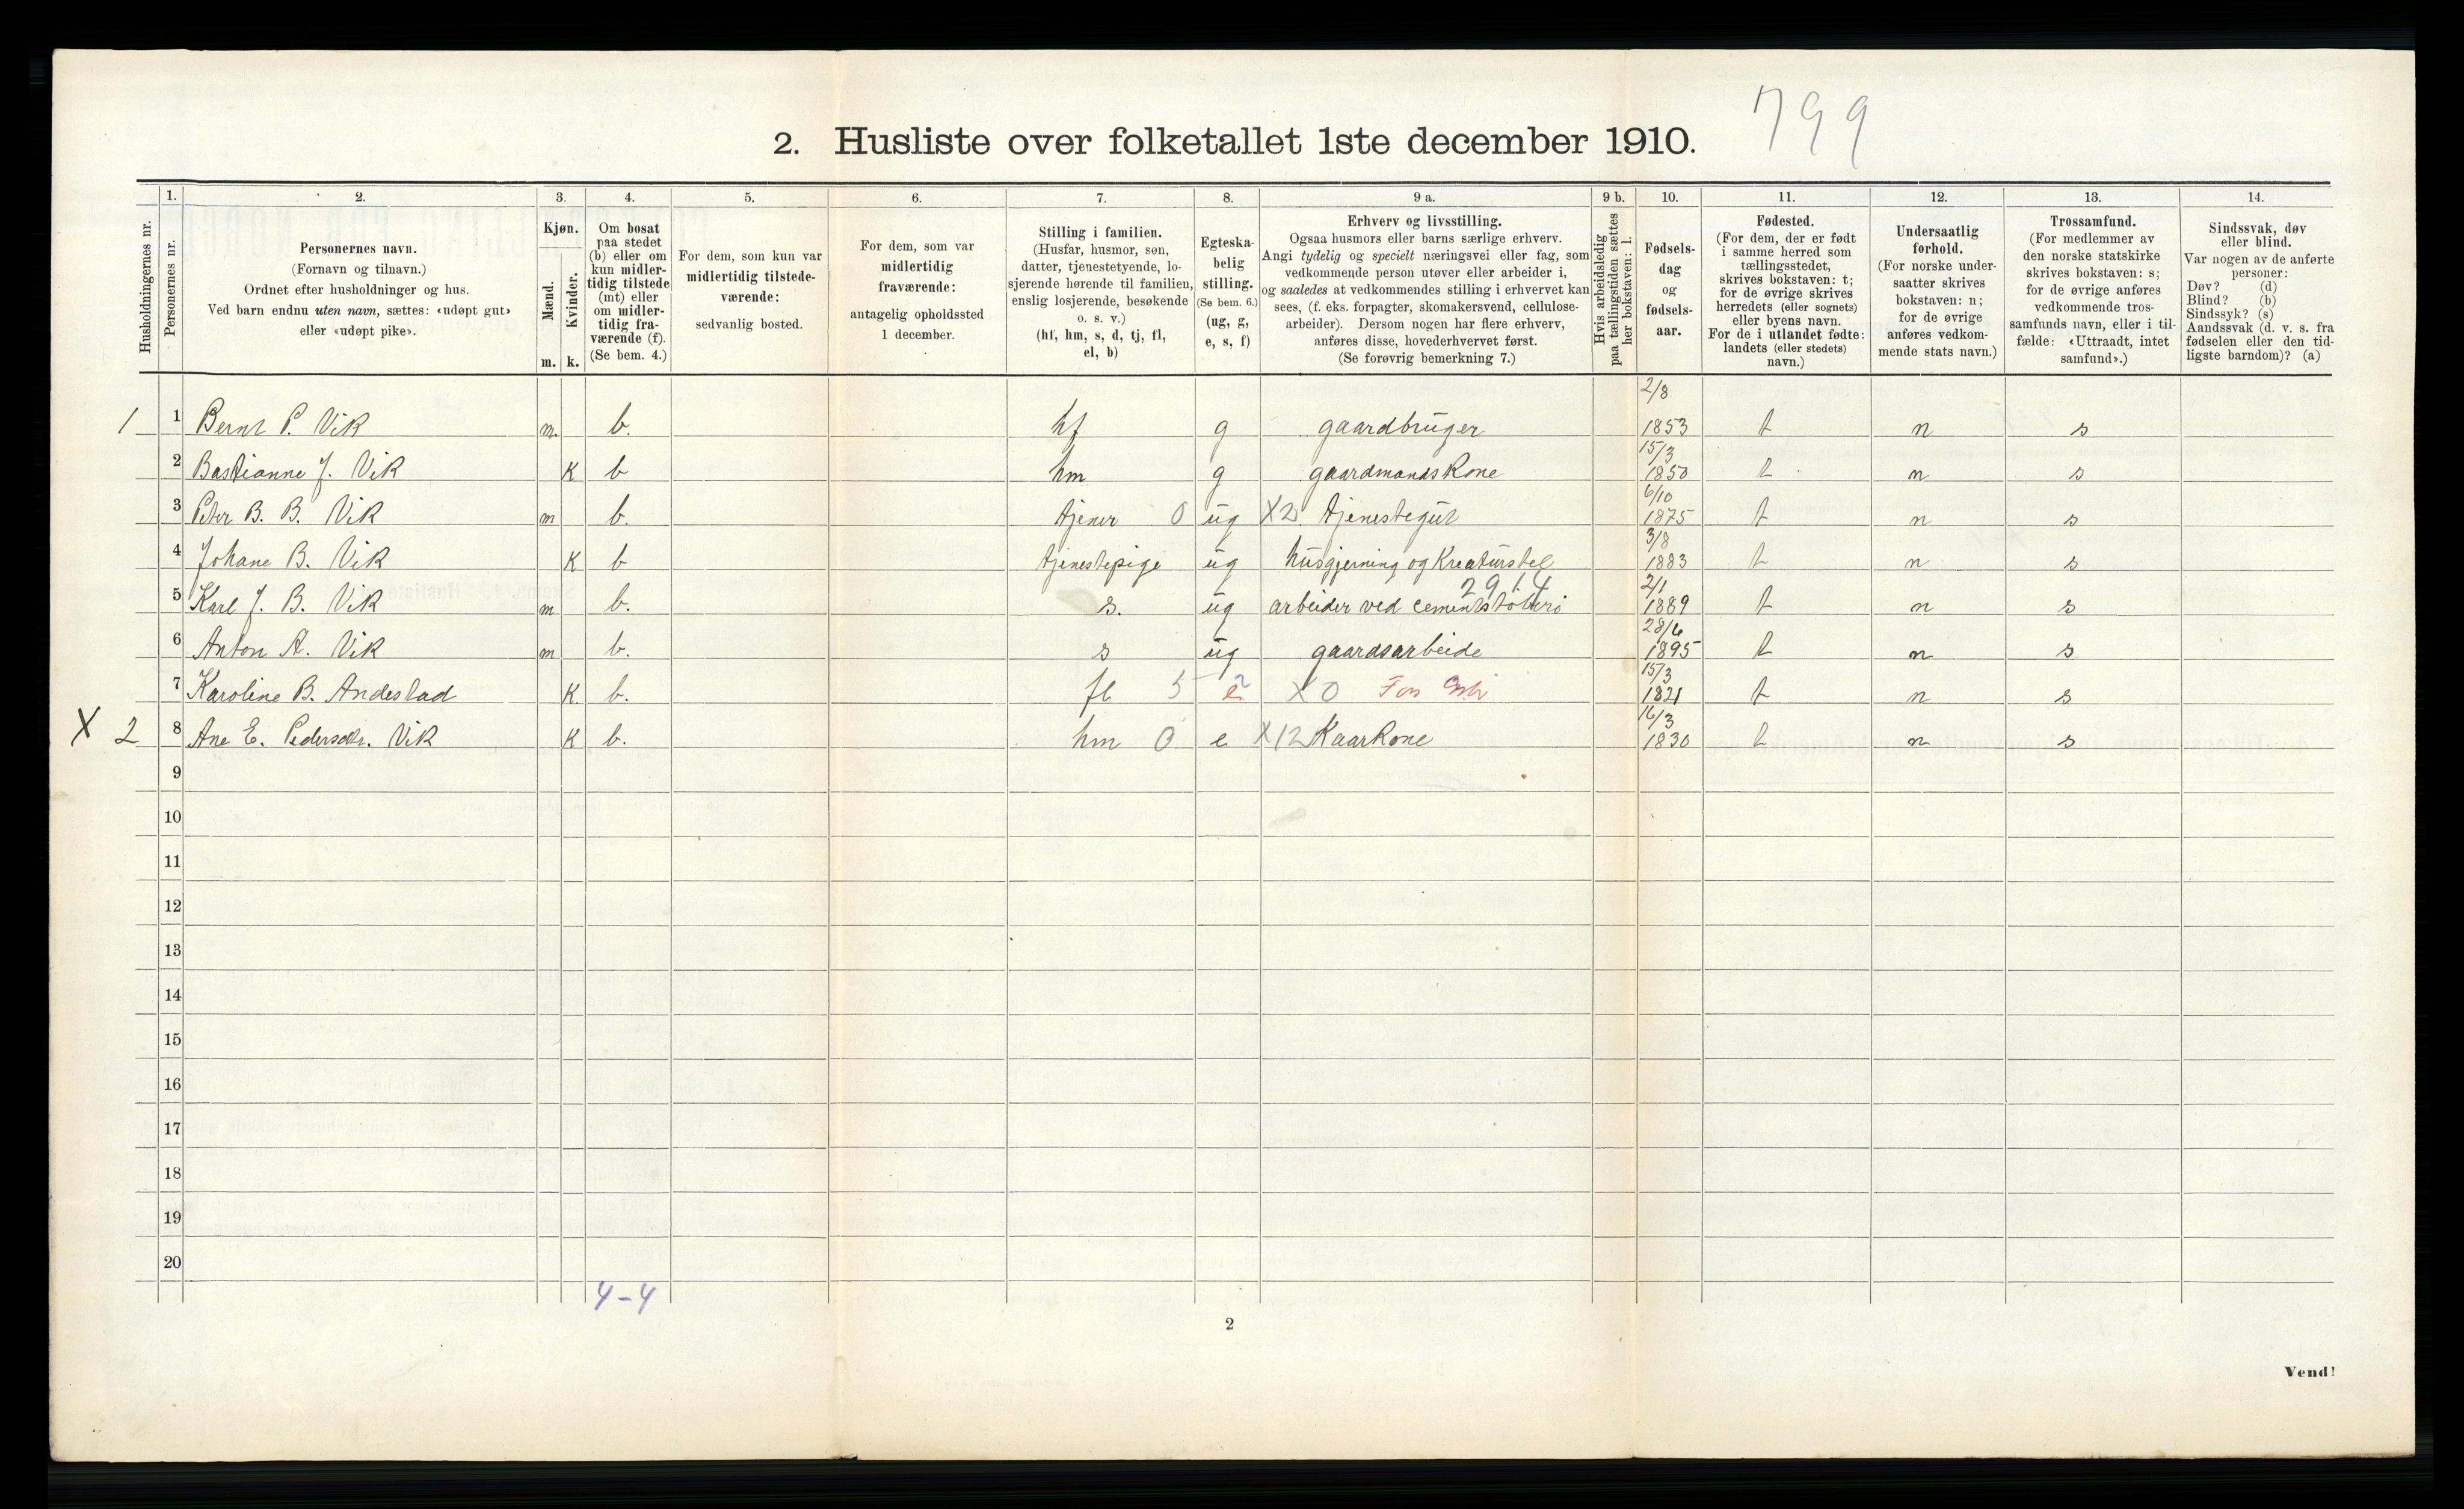 799
2. Husliste over folketallet 1ste december 1910.
Husholdningernes nr.
1.
Personernes nr.
2.
Personernes navn.
(Fornavn og tilnavn.)
Ordnet efter husholdninger og hus.
Ved barn endnu uten navn, sættes: «udøpt gut»
eller «udøpt pike».
3.
Kjøn.
Mænd.
Kvinder.
m. k.
4.
Om bosat
paa stedet
(b) eller om
kun midler-
tidig tilstede
(mt) eller
om midler-
tidig fra-
værende (f).
(Se bem. 4.)
5.
For dem, som kun var
midlertidig tilstede-
værende:
sedvanlig bosted.
6.
For dem, som var
midlertidig
fraværende:
antagelig opholdssted
1 december.
7.
Stilling i familien.
(Husfar, husmor, søn,
datter, tjenestetyende, lo-
sjerende hørende til familien,
enslig losjerende, besøkende
o. s. v.)
(hf, hm, s, d, tj, fl,
el, b)
8.
Egteska-
belig
stilling.
(Se bem. 6.)
(ug, g,
e, s, f)
9 a.
Erhverv og livsstilling.
Ogsaa husmors eller barns særlige erhverv.
Angi tydelig og specielt næringsvei eller fag, som
vedkommende person utøver eller arbeider i,
og saaledes at vedkommendes stilling i erhvervet kan
sees, (f. eks. forpagter, skomakersvend, cellulose-
arbeider). Dersom nogen har flere erhverv,
anføres disse, hovederhvervet først.
(Se forøvrig bemerkning 7.)
9 b.
Hvis arbeidsledig
paa tællingstiden sættes
her bokstaven: l.
10.
Fødsels-
dag
og
fødsels-
aar.
11.
Fødested.
(For dem, der er født
i samme herred som
tællingsstedet,
skrives bokstaven: t;
for de øvrige skrives
herredets (eller sognets)
eller byens navn.
For de i utlandet fødte:
landets (eller stedets)
navn.)
12.
Undersaatlig
forhold.
(For norske under-
saatter skrives
bokstaven: n;
for de øvrige
anføres vedkom-
mende stats navn.)
13.
Trossamfund.
(For medlemmer av
den norske statskirke
skrives bokstaven: s;
for de øvrige anføres
vedkommende tros-
samfunds navn, eller i til-
fælde: «Uttraadt, intet
samfund».)
14.
Sindssvak, døv
eller blind.
Var nogen av de anførte
personer:
Døv? (d)
Blind? (b)
Sindssyk? (s)
Aandssvak (d. v. s. fra
fødselen eller den tid-
ligste barndom)? (a)
1 1 Bernt P. Vik m. b. hf g gaardbruger 2/8 1853 t n s
2 Bastianne J. Vik K b hm g gaardmandskone 15/3 1850 t n s
3 Peter B. B. Vik m b. tjener 0 ug X2 tjenestegut 6/10 1875 t n s
4 Johane B. Vik K b tjenestepige ug husgjerning og Kreaturstel 3/8 1883 t n s
5 Karl J. B. Vik m b. s. ug arbeider ved cementstøberi 2914 2/1 1889 t n s
6 Anton A. Vik m b. s ug gaardsarbeide 28/6 1895 t n s
7 Karoline B. Andestad K. b. fl 5 e 2 X0 15/3 1821 t n s
X 2 8 Ane E. Pedersdtr. Vik K b. hm 0 e X12 Kaarkone 16/3 1830 t n s
9
10
11
12
13
14
15
16
17
18
19
20
4-4
2
Vend!